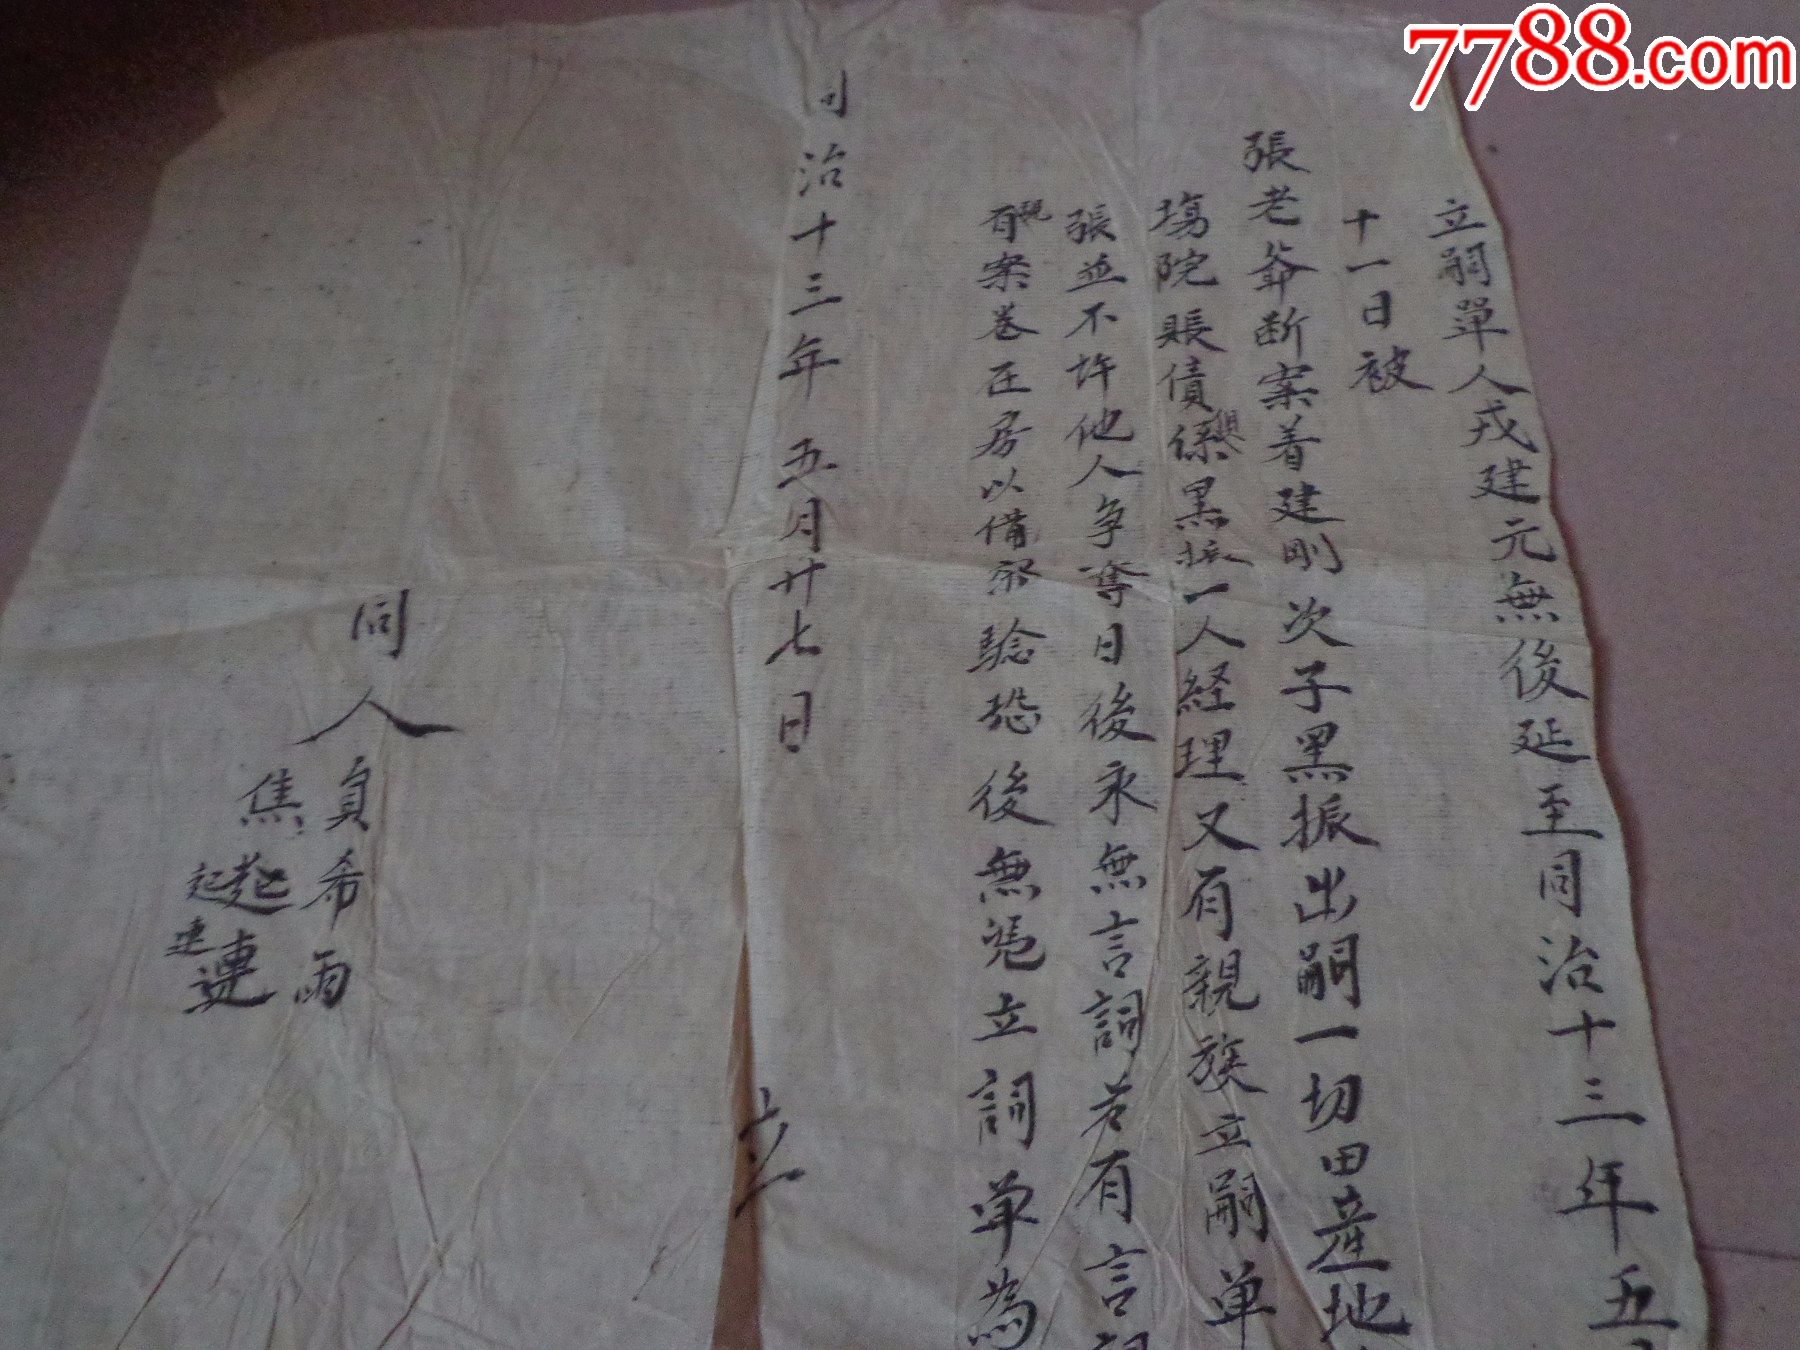 7788.com
立嗣單人戎建元無後延至同治十三年五
十一日被
張老爺断案着建剛次子黑振出嗣一切田産地
塲院賬債俱係黑振一人経理又有親族立嗣单
張並不許他人争奪日後永無言詞若有言
有案卷在房以備験恐後無凴立詞单為
同治十三年五月廿七日 立
同人
負希雨
焦起連
起連